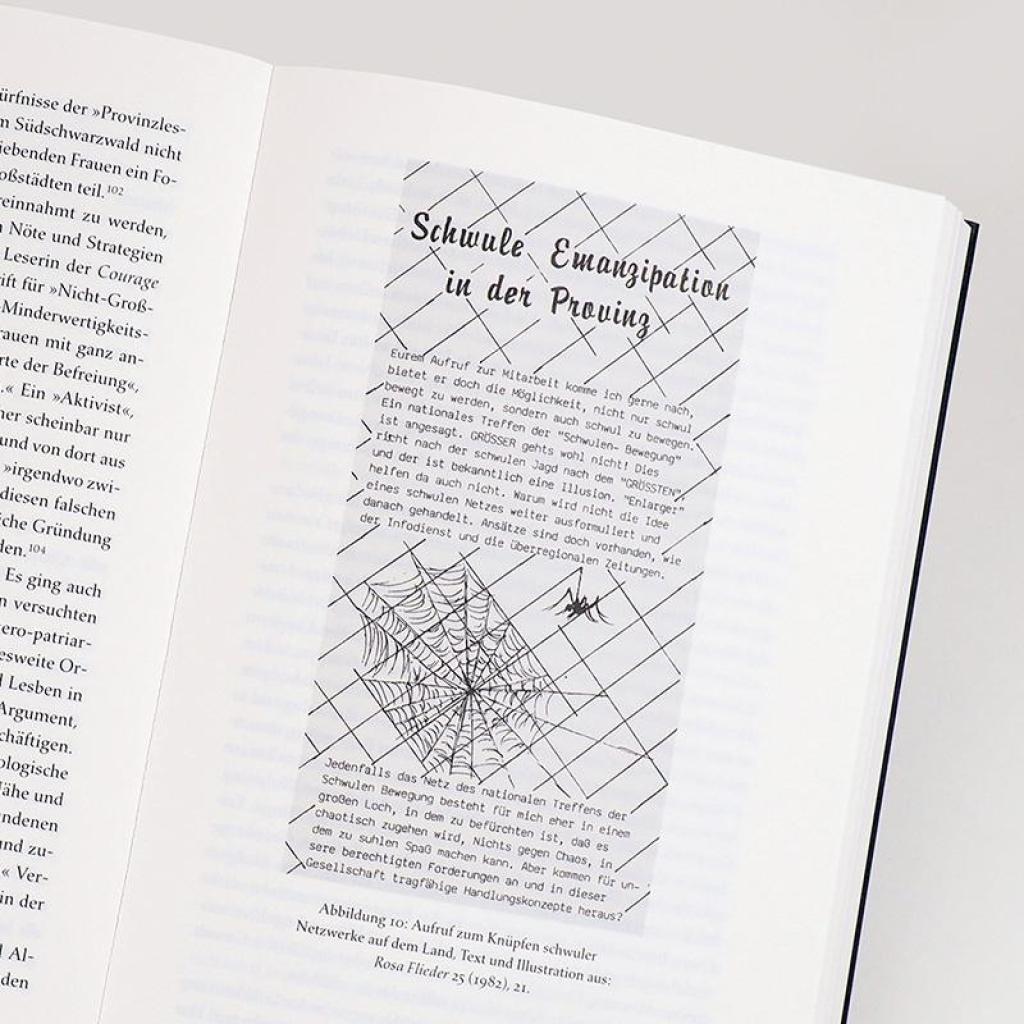 ürfnisse der »Provinzles-
m Südschwarzwald nicht
iebenden Frauen ein Fo-
oßstädten teil.¹⁰²
reinnahmt zu werden,
n Nöte und Strategien
Leserin der Courage
ift für »Nicht-Groß-
-Minderwertigkeits-
rauen mit ganz an-
rte der Befreiung«,
.« Ein »Aktivist«,
her scheinbar nur
und von dort aus
»irgendwo zwi-
diesen falschen
iche Gründung
den.¹⁰⁴
Es ging auch
n versuchten
tero-patriar-
esweite Or-
l Lesben in
Argument,
chäftigen.
ologische
Nähe und
ndenen
und zu-
.« Ver-
in der
l Al-
den
Schwule Emanzipation
in der Provinz
Eurem Aufruf zur Mitarbeit komme ich gerne nach,
bietet er doch die Möglichkeit, nicht nur schwul
bewegt zu werden, sondern auch schwul zu bewegen.
Ein nationales Treffen der "Schwulen- Bewegung"
ist angesagt. GRÖSSER gehts wohl nicht! Dies
richt nach der schwulen Jagd nach dem "GRÖSSTEN",
und der ist bekanntlich eine Illusion. "Enlarger"
helfen da auch nicht. Warum wird nicht die Idee
eines schwulen Netzes weiter ausformuliert und
danach gehandelt. Ansätze sind doch vorhanden, wie
der Infodienst und die überregionalen Zeitungen.
Jedenfalls das Netz des nationalen Treffens der
Schwulen Bewegung besteht für mich eher in einem
großen Loch, in dem zu befürchten ist, daß es
chaotisch zugehen wird, Nichts gegen Chaos, in
dem zu suhlen Spaß machen kann. Aber kommen für un-
sere berechtigten Forderungen an und in dieser
Gesellschaft tragfähige Handlungskonzepte heraus?
Abbildung 10: Aufruf zum Knüpfen schwuler
Netzwerke auf dem Land, Text und Illustration aus:
Rosa Flieder 25 (1982), 21.